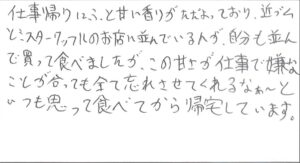 仕事帰りにふと甘い香りがただよっており、近づく
とミスターワッフルのお店に並んでいる人が、自分も並ん
で買って食べましたが、この甘さが仕事で嫌な
ことが合っても全て忘れさせてくれるなぁ〜と
いつも思って食べてから帰宅しています。